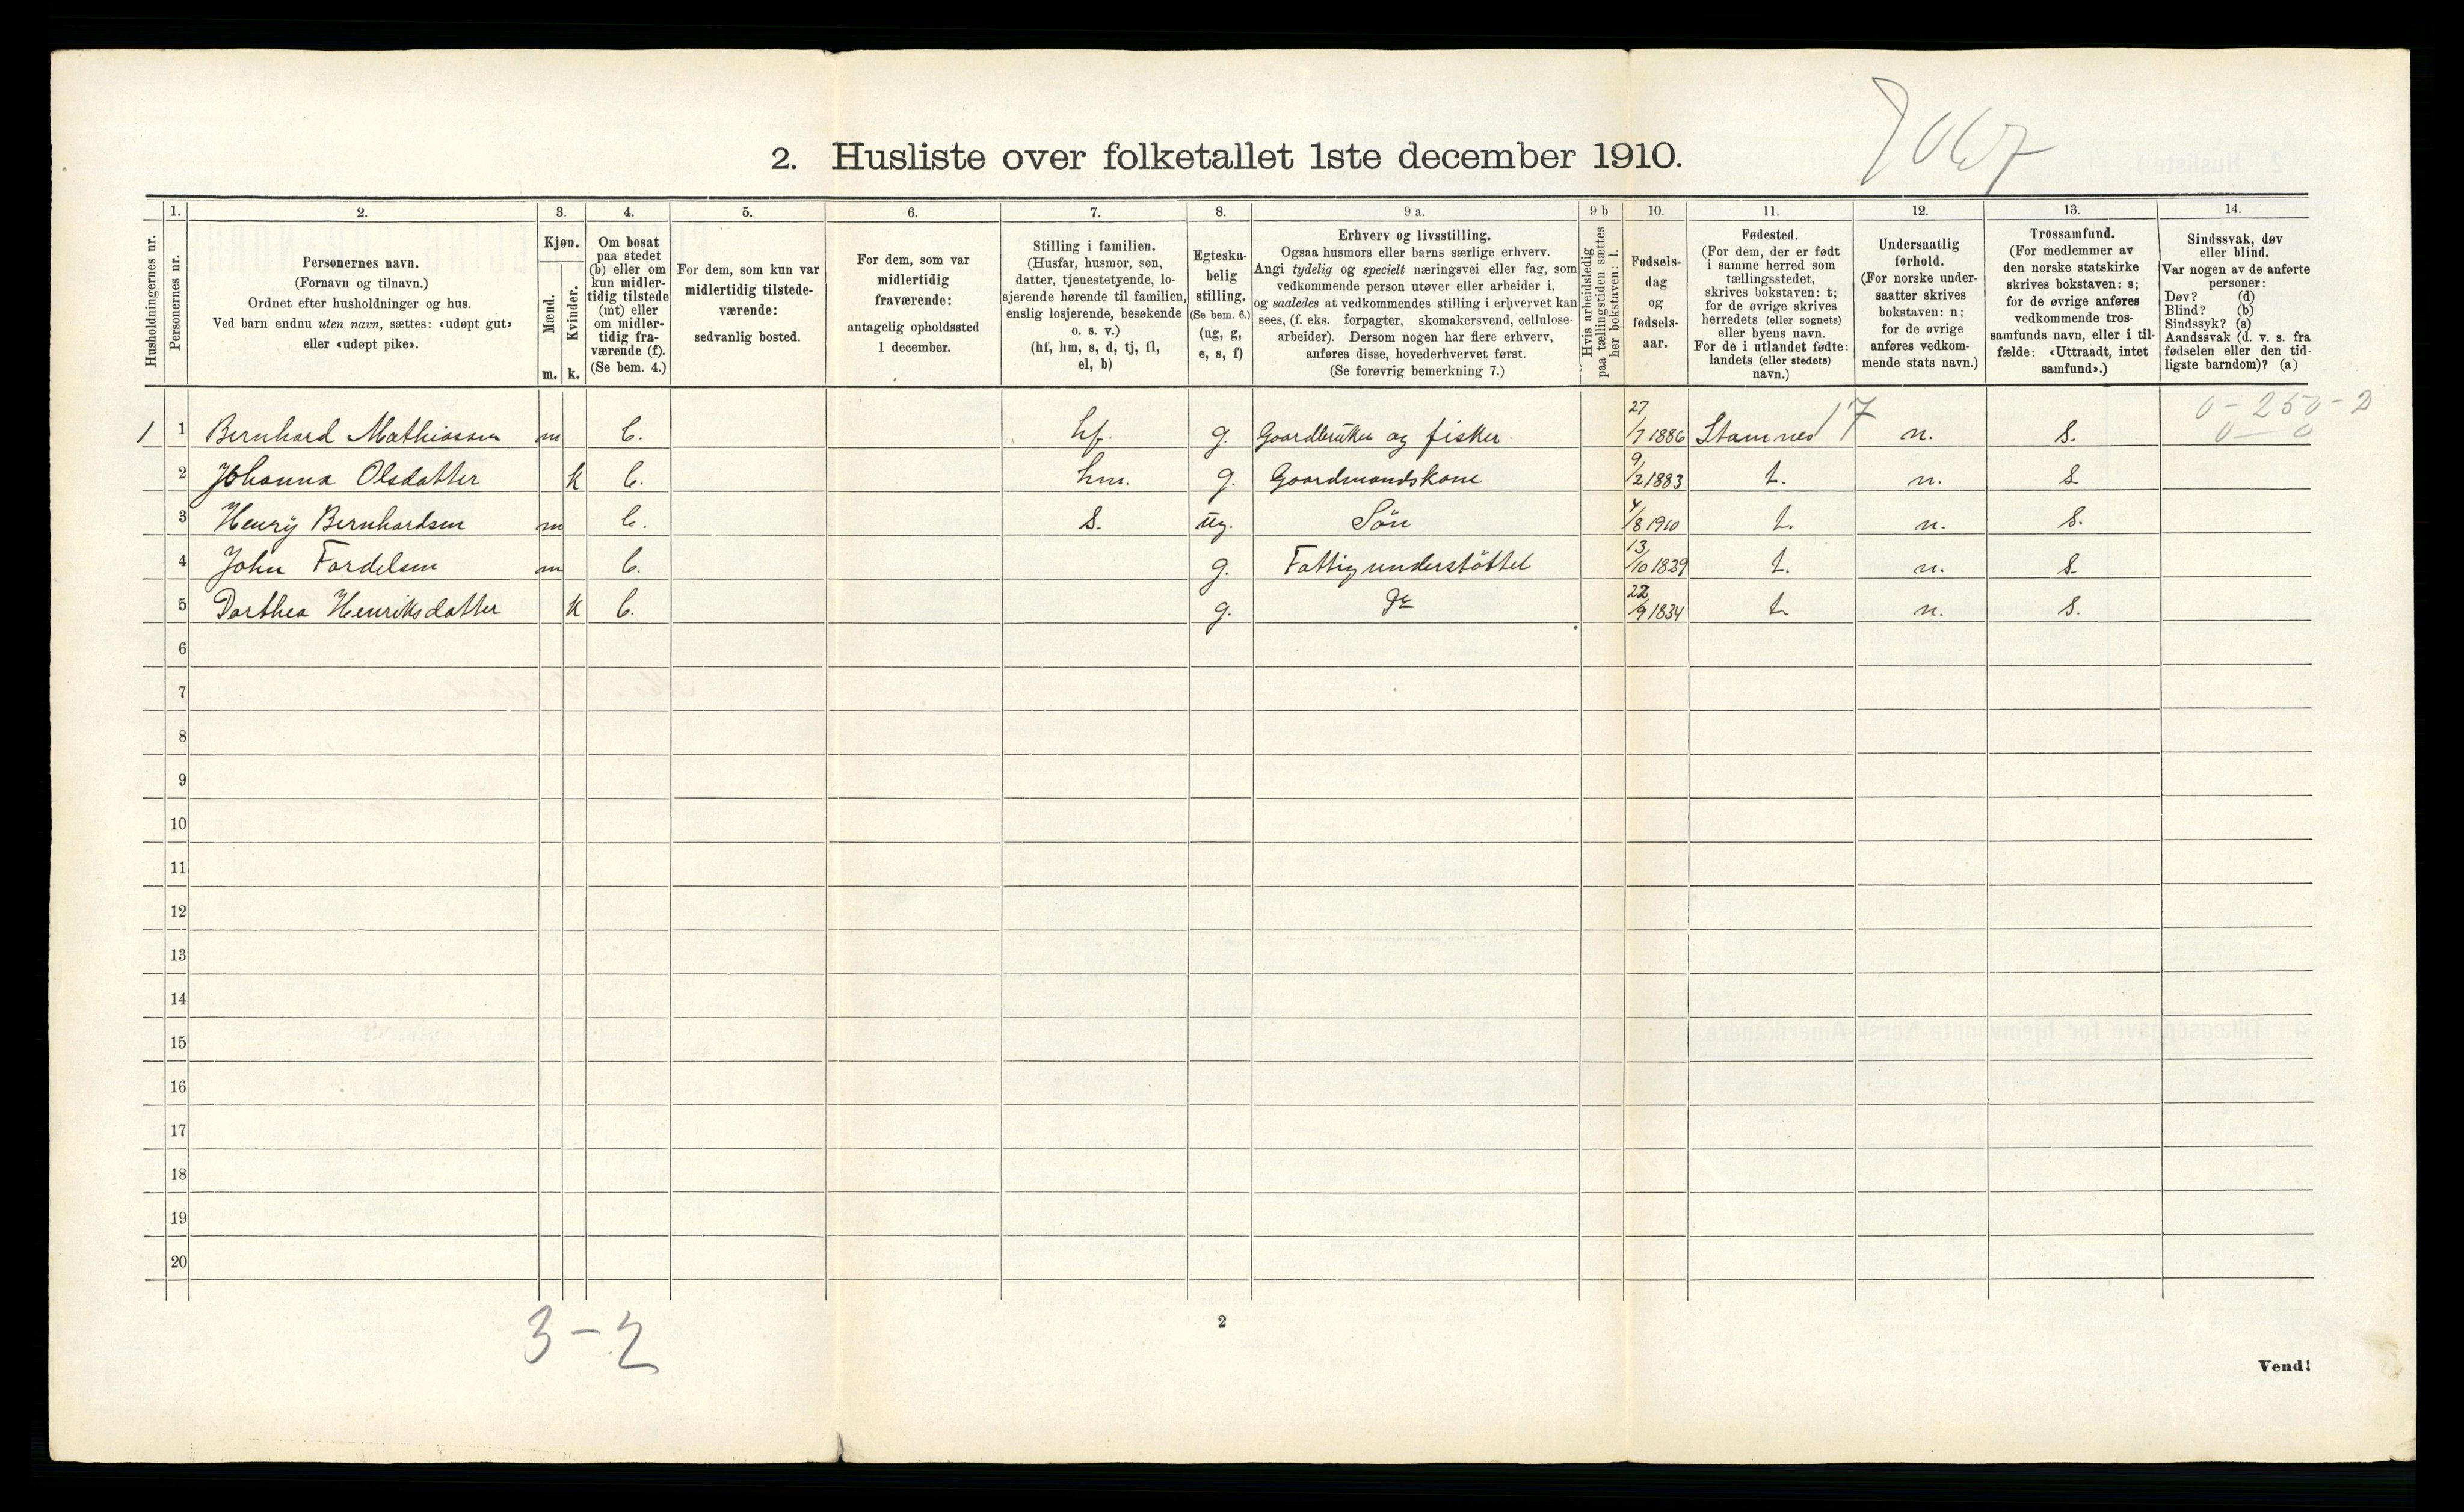 2. Husliste over folketallet 1ste december 1910.
1. 2. 3. 4. 5. 6. 7. 8. 9 a. 9 b 10. 11. 12. 13. 14.
Husholdningernes nr.
Personernes nr.
Personernes navn.
(Fornavn og tilnavn.)
Ordnet efter husholdninger og hus.
Ved barn endnu uten navn, sættes: «udøpt gut»
eller «udøpt pike».
Kjøn.
Mænd.
Kvinder.
m. k.
Om bosat
paa stedet
(b) eller om
kun midler-
tidig tilstede
(mt) eller
om midler-
tidig fra-
værende (f).
(Se bem. 4.)
For dem, som kun var
midlertidig tilstede-
værende:
sedvanlig bosted.
For dem, som var
midlertidig
fraværende:
antagelig opholdssted
1 december.
Stilling i familien.
(Husfar, husmor, søn,
datter, tjenestetyende, lo-
sjerende hørende til familien,
enslig losjerende, besøkende
o. s. v.)
(hf, hm, s, d, tj, fl,
el, b)
Egteska-
belig
stilling.
(Se bem. 6.)
(ug, g,
e, s, f)
Erhverv og livsstilling.
Ogsaa husmors eller barns særlige erhverv.
Angi tydelig og specielt næringsvei eller fag, som
vedkommende person utøver eller arbeider i,
og saaledes at vedkommendes stilling i erhvervet kan
sees, (f. eks. forpagter, skomakersvend, cellulose-
arbeider). Dersom nogen har flere erhverv,
anføres disse, hovederhvervet først.
(Se forøvrig bemerkning 7.)
Hvis arbeidsledig
paa tællingstiden sættes
her bokstaven: l.
Fødsels-
dag
og
fødsels-
aar.
Fødested.
(For dem, der er født
i samme herred som
tællingsstedet,
skrives bokstaven: t;
for de øvrige skrives
herredets (eller sognets)
eller byens navn.
For de i utlandet fødte:
landets (eller stedets)
navn.)
Undersaatlig
forhold.
(For norske under-
saatter skrives
bokstaven: n;
for de øvrige
anføres vedkom-
mende stats navn.)
Trossamfund.
(For medlemmer av
den norske statskirke
skrives bokstaven: s;
for de øvrige anføres
vedkommende tros-
samfunds navn, eller i til-
fælde: «Uttraadt, intet
samfund».)
Sindssvak, døv
eller blind.
Var nogen av de anførte
personer:
Døv? (d)
Blind? (b)
Sindssyk? (s)
Aandssvak (d. v. s. fra
fødselen eller den tid-
ligste barndom)? (a)
0-250-2
1 1 Bernhard Mathiassen m b. hf. g. Gaardbruker og fisker. 27/7 1886 Stamnes 17 n. s. 0-0
2 Johanna Olsdatter k b. hm. g. Gaardmandskone 9/2 1883 t. n. s
3 Henry Bernhardsen m b. s. ug. Sön 4/8 1910 t. n. s.
4 John Fordelsen m b. g. Fattigunderstöttet 13/10 1829 t. n. s
5 Dorthea Henriksdatter k b. g. Do 22/9 1834 t. n. s.
6
7
8
9
10
11
12
13
14
15
16
17
18
19
20
3-2
2
Vend!